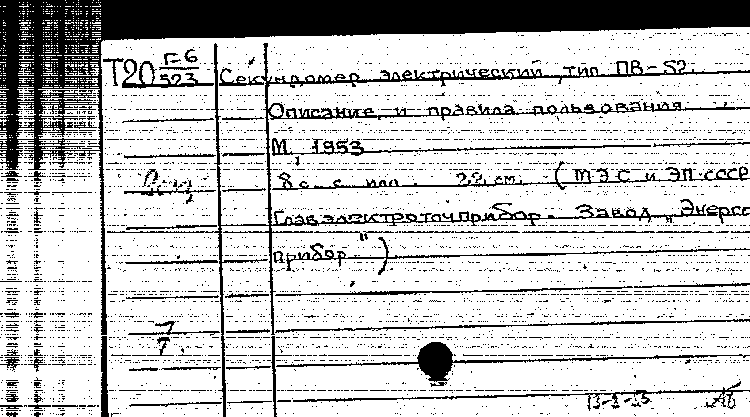 Т20 Г-6/523 Секундомер электрический, тип ПВ-52.
Описание и правила пользования
М, 1953
8 с. с илл. 22 см. (МЭС и ЭП СССР
Главэлектроточприбор. Завод „Энерго
прибор")
7
7.